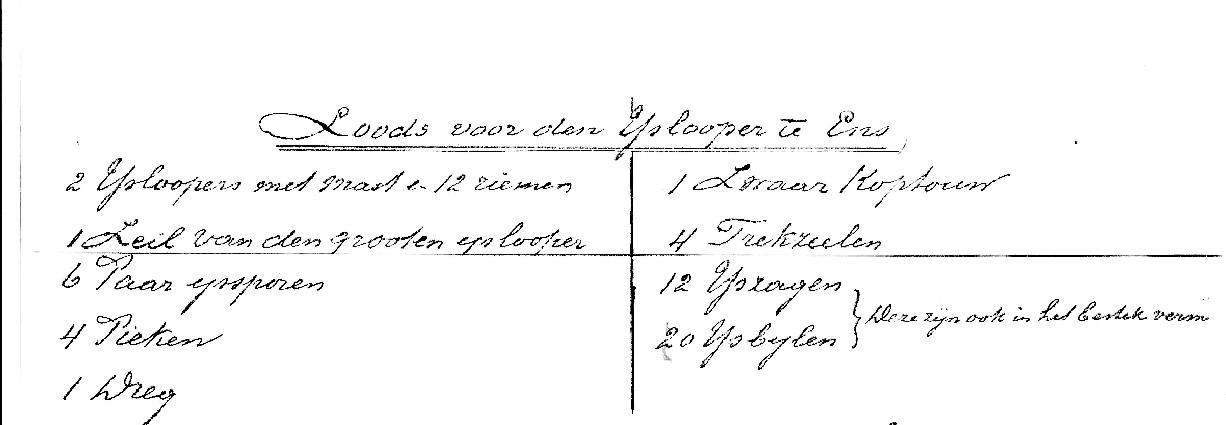 Loods voor den Yslooper te Ens
2 Ysloopers met mast e. 12 riemen
1 Zeil van den grooten yslooper
6 Paar yssporen
4 Pieken
1 Dreg
1 Zwaar Koptouw
4 Trekzeelen
12 Yszagen
20 Ysbylen
Deze zyn ook in het bestek verm